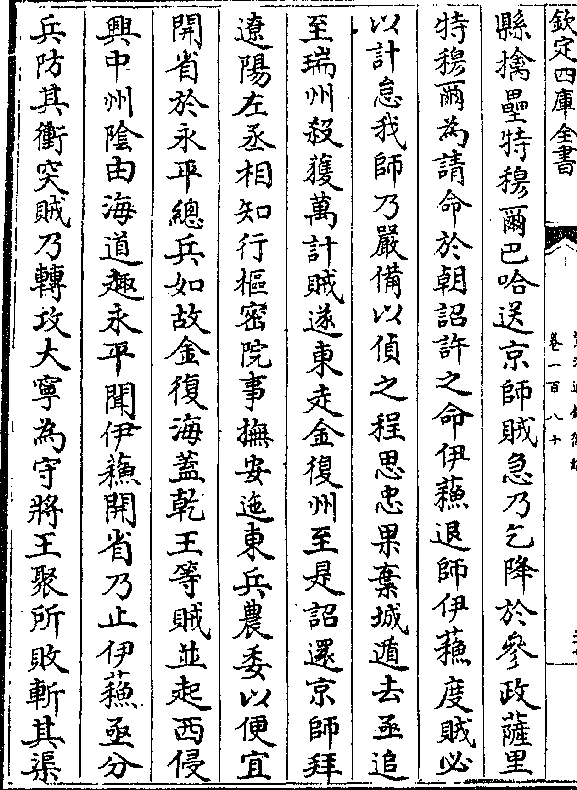 欽定四庫全書
卷一百八十
縣擒壘特穆爾巴哈送京師賊急乃乞降於參政薩里
特穆爾為請命於朝詔許之命伊蘓退師伊蘓度賊必
以計怠我師乃嚴備以偵之程思忠果棄城遁去亟追
至瑞州殺獲萬計賊遂東走金復州至是詔還京師拜
遼陽左丞相知行樞密院事撫安迤東兵農委以便宜
開省於永平總兵如故金復海蓋乾王等賊並起西侵
興中州陰由海道趣永平聞伊蘓開省乃止伊蘓亟分
兵防其衝突賊乃轉攻大寧為守將王聚所敗斬其渠